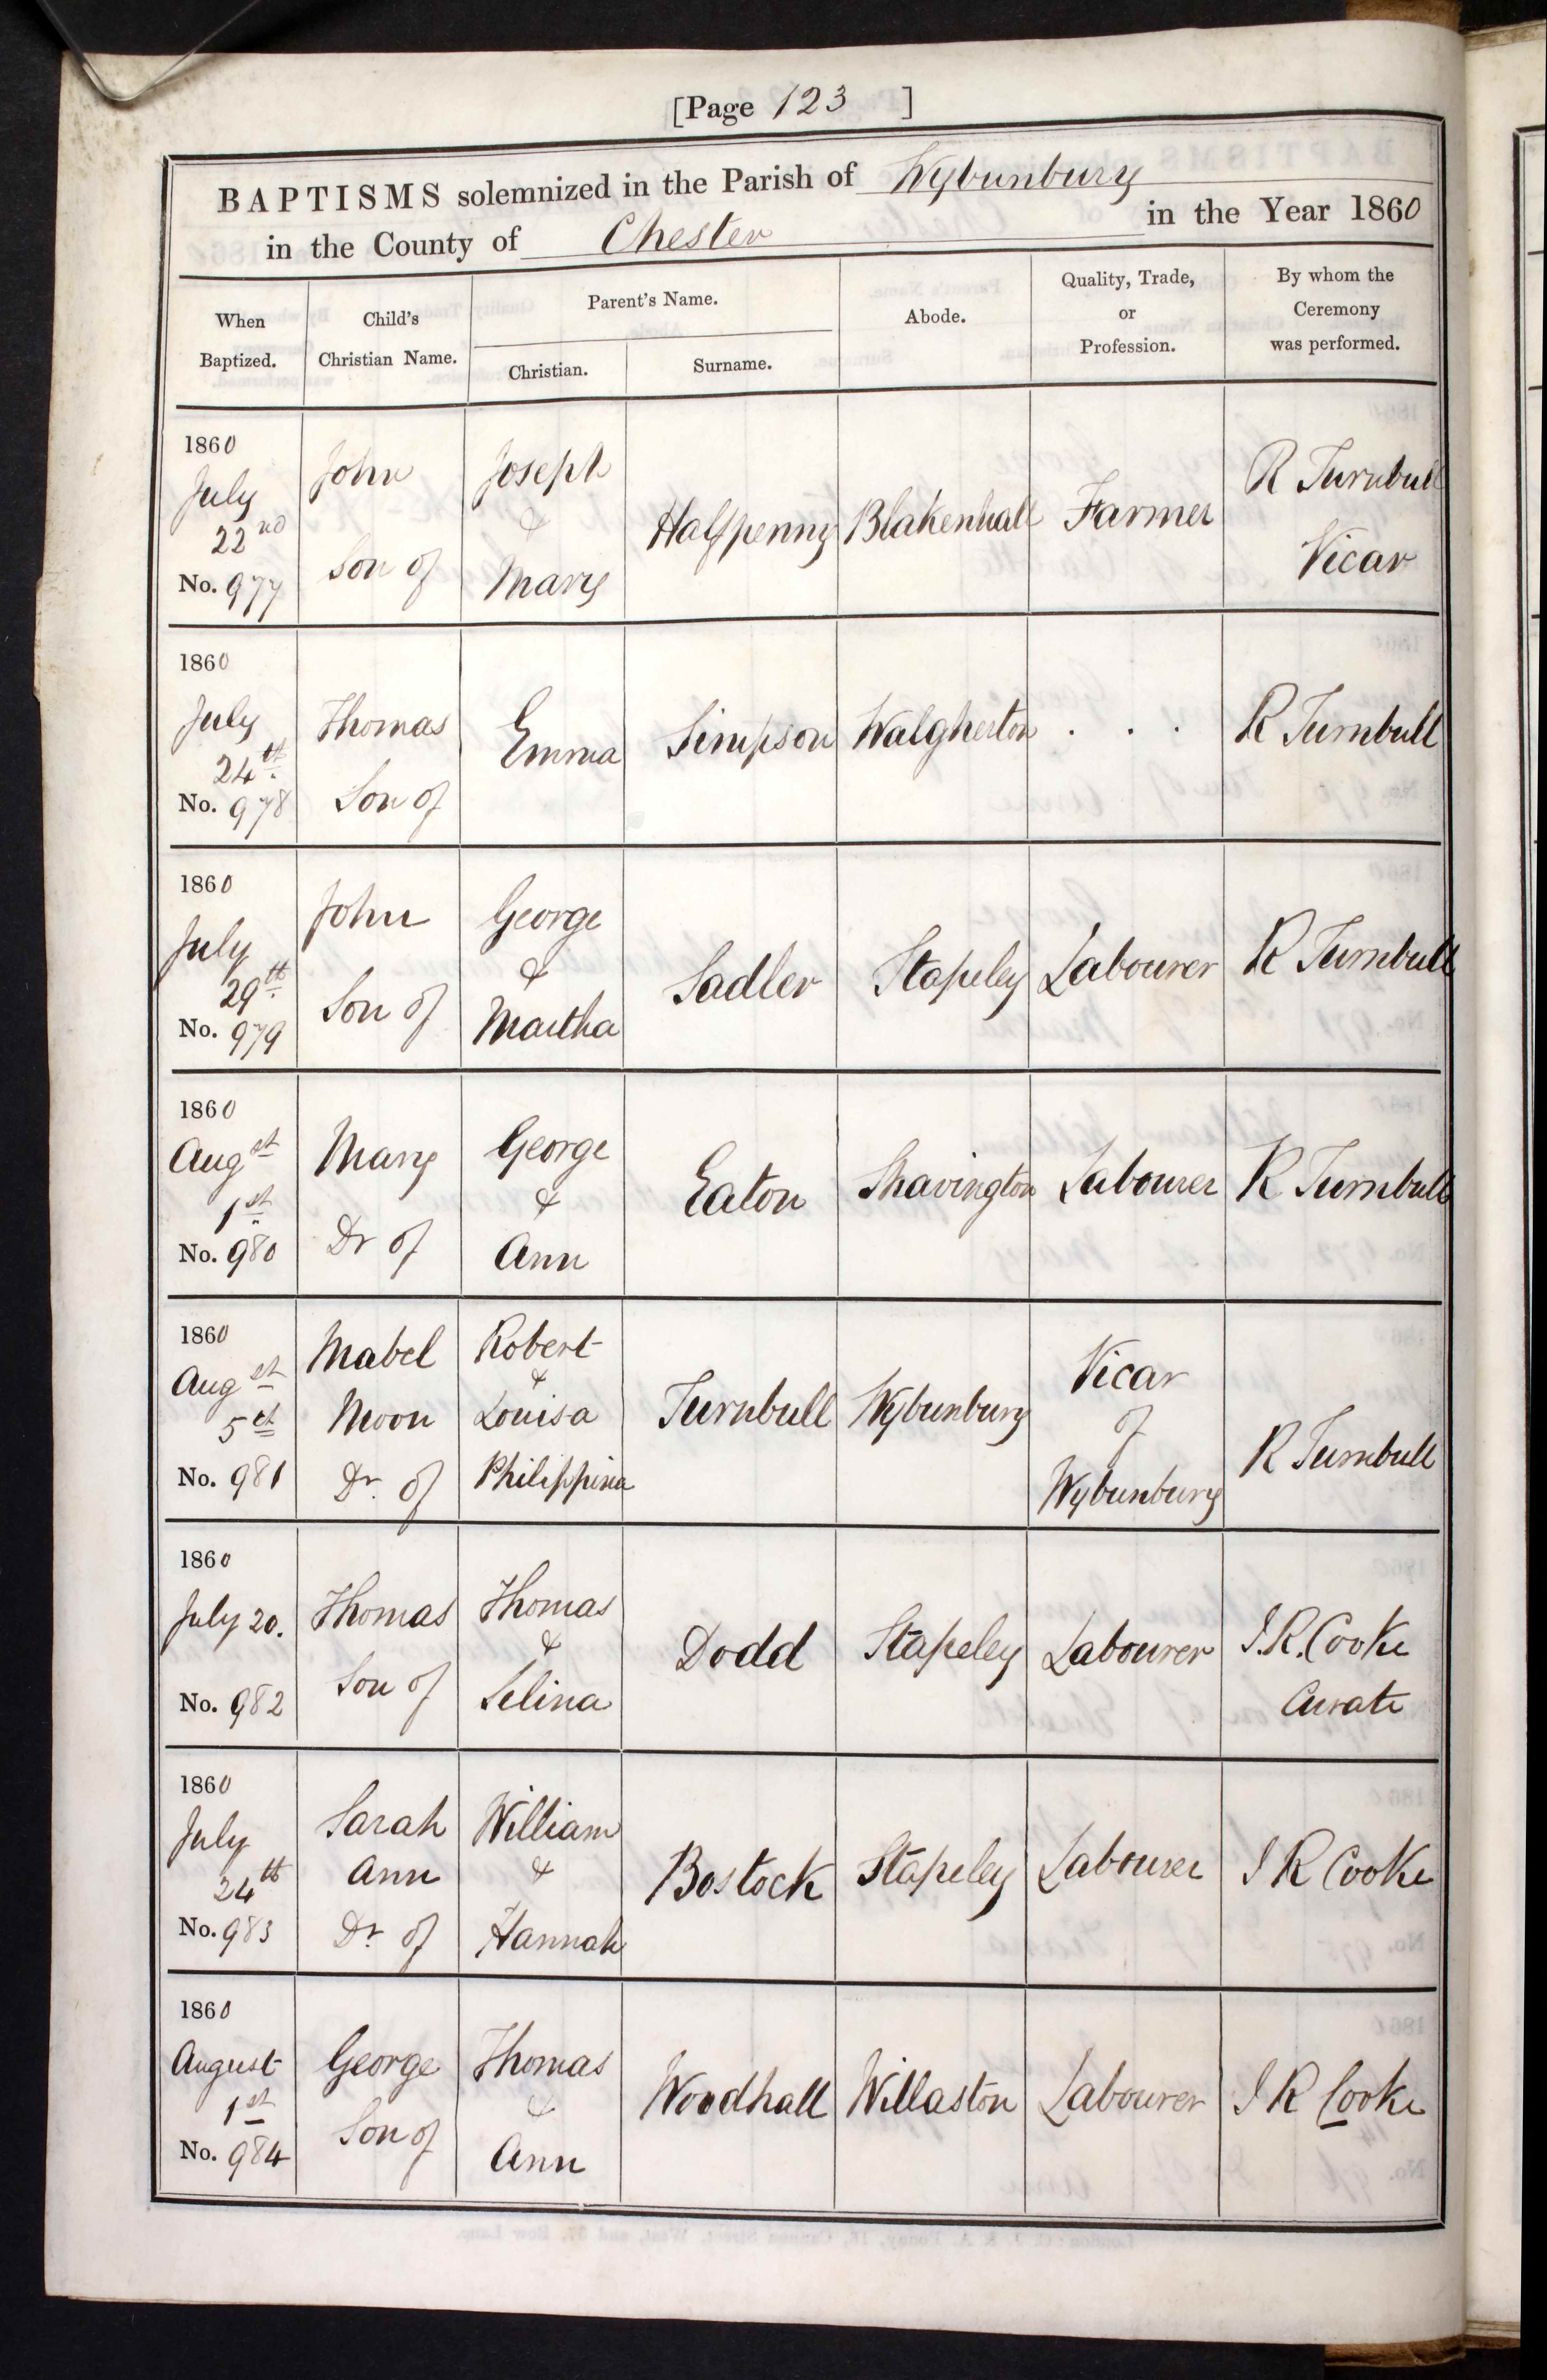 [Page 123 ]
BAPTISMS solemnized in the Parish of Wybunbury
in the County of Chester in the Year 1860
When Baptized.
Child's Christian Name.
Parent's Name.
Christian.
Surname.
Abode.
Quality, Trade, or Profession.
By whom the Ceremony was performed.
1860
July
22nd
No. 977
John
Son of
Joseph
&
Mary
Halfpenny
Blakenhall
Farmer
R Turnbull
Vicar
1860
July
24th
No. 978
Thomas
Son of
Emma
Simpson
Walgherton
. . .
R Turnbull
1860
July
29th
No. 979
John
Son of
George
&
Martha
Sadler
Stapeley
Labourer
R Turnbull
1860
Augst
1st
No. 980
Mary
Dr of
George
&
Ann
Eaton
Shavington
Labourer
R Turnbull
1860
Augst
5th
No. 981
Mabel
Moon
Dr. of
Robert
&
Louisa
Philippina
Turnbull
Wybunbury
Vicar
of
Wybunbury
R Turnbull
1860
July 20.
No. 982
Thomas
Son of
Thomas
&
Selina
Dodd
Stapeley
Labourer
I.R. Cooke
Curate
1860
July
24th
No. 983
Sarah
Ann
Dr. of
William
&
Hannah
Bostock
Stapeley
Labourer
I R Cooke
1860
August
1st
No. 984
George
Son of
Thomas
&
Ann
Woodhall
Willaston
Labourer
I R Cooke